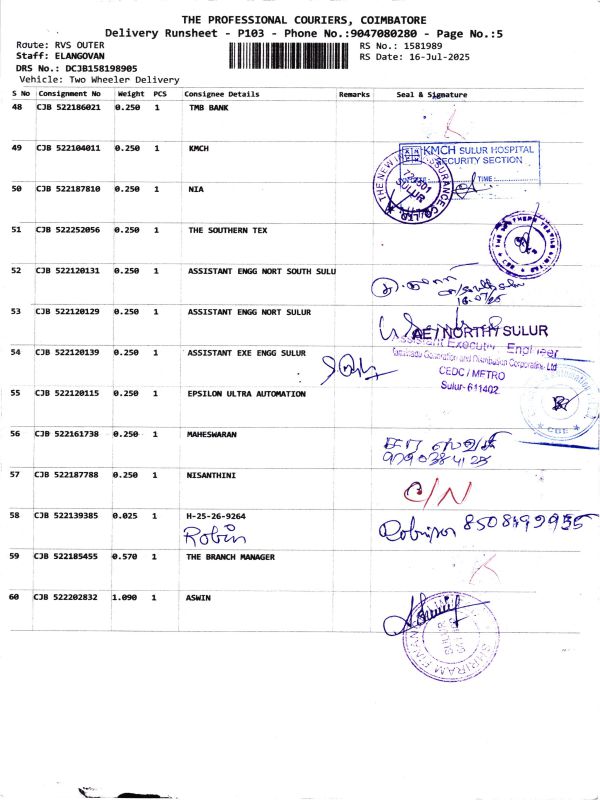 THE PROFESSIONAL COURIERS, COIMBATORE
Delivery Runsheet - P103 - Phone No.:9047080280 - Page No.:5
Route: RVS OUTER RS No.: 1581989
Staff: ELANGOVAN RS Date: 16-Jul-2025
DRS No.: DCJB158198905
Vehicle: Two Wheeler Delivery
S No Consignment No Weight PCS Consignee Details Remarks Seal & Signature
48 CJB 522186021 0.250 1 TMB BANK
49 CJB 522104011 0.250 1 KMCH
KMCH SULUR HOSPITAL
SECURITY SECTION
TIME:
50 CJB 522187810 0.250 1 NIA
SULUR
51 CJB 522252056 0.250 1 THE SOUTHERN TEX
52 CJB 522120131 0.250 1 ASSISTANT ENGG NORT SOUTH SULU
16.07/25
53 CJB 522120129 0.250 1 ASSISTANT ENGG NORT SULUR
AE / NORTH / SULUR
Assistant Executive Engineer
54 CJB 522120139 0.250 1 ASSISTANT EXE ENGG SULUR
Tamilnadu Generation and Distribution Corporation Ltd
CEDC / METRO
Sulur- 641402
55 CJB 522120115 0.250 1 EPSILON ULTRA AUTOMATION
CBE
56 CJB 522161738 0.250 1 MAHESWARAN
9790384125
57 CJB 522187788 0.250 1 NISANTHINI
C/N
58 CJB 522139385 0.025 1 H-25-26-9264
Robin Robinson 8508499955
59 CJB 522185455 0.570 1 THE BRANCH MANAGER
60 CJB 522202832 1.090 1 ASWIN